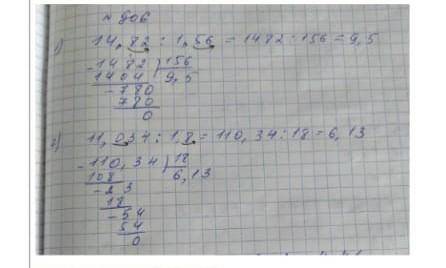 № 906
1) 14,82 : 1,56 = 1482 : 156 = 9,5
-1482 | 156
1404 | 9,5
-780
780
0
2) 11,034 : 1,8 = 110,34 : 18 = 6,13
-110,34 | 18
108 | 6,13
-23
18
-54
54
0